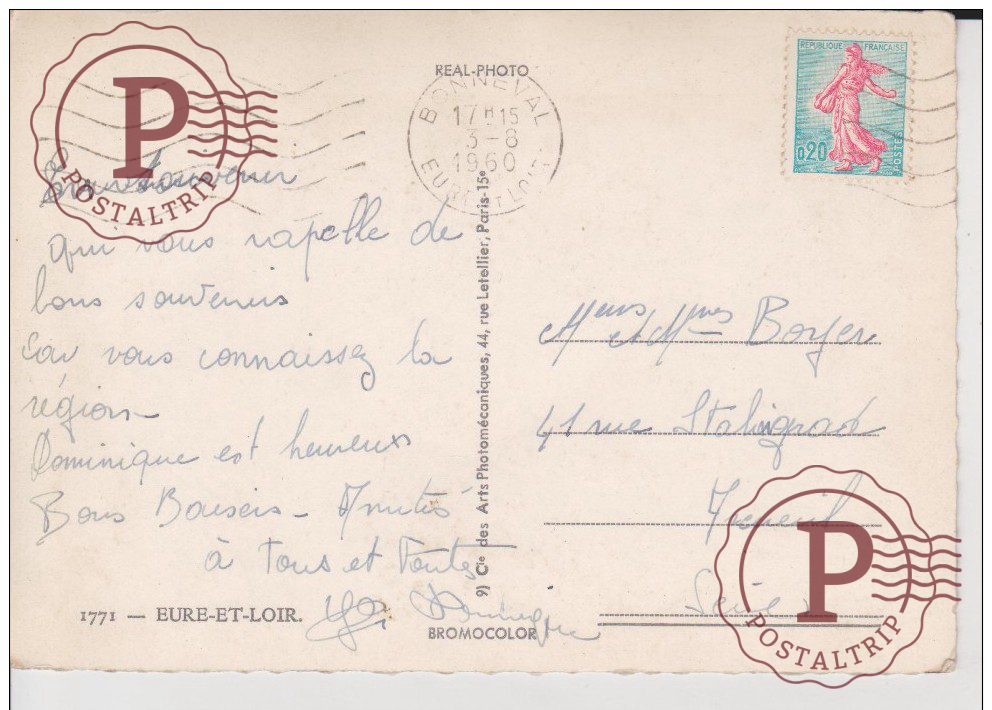 REAL-PHOTO
BONNEVAL
17 H 15
3-8
1960
EURE ET LOIR
REPUBLIQUE FRANÇAISE
0.20
POSTES
P
POSTALTRIP
souvenir
qui vous rapelle de
bons souvenirs
Car vous connaissez la
région
Dominique est heureux
Bons Baisers - Amitiés
à Tous et Toutes
Dominique
Meurs et Mmes Boyer
41 rue Stalingrad
Seine
9) Cie des Arts Photomécaniques, 44, rue Letellier, Paris-15e
1771 — EURE-ET-LOIR.
BROMOCOLOR
P
POSTALTRIP